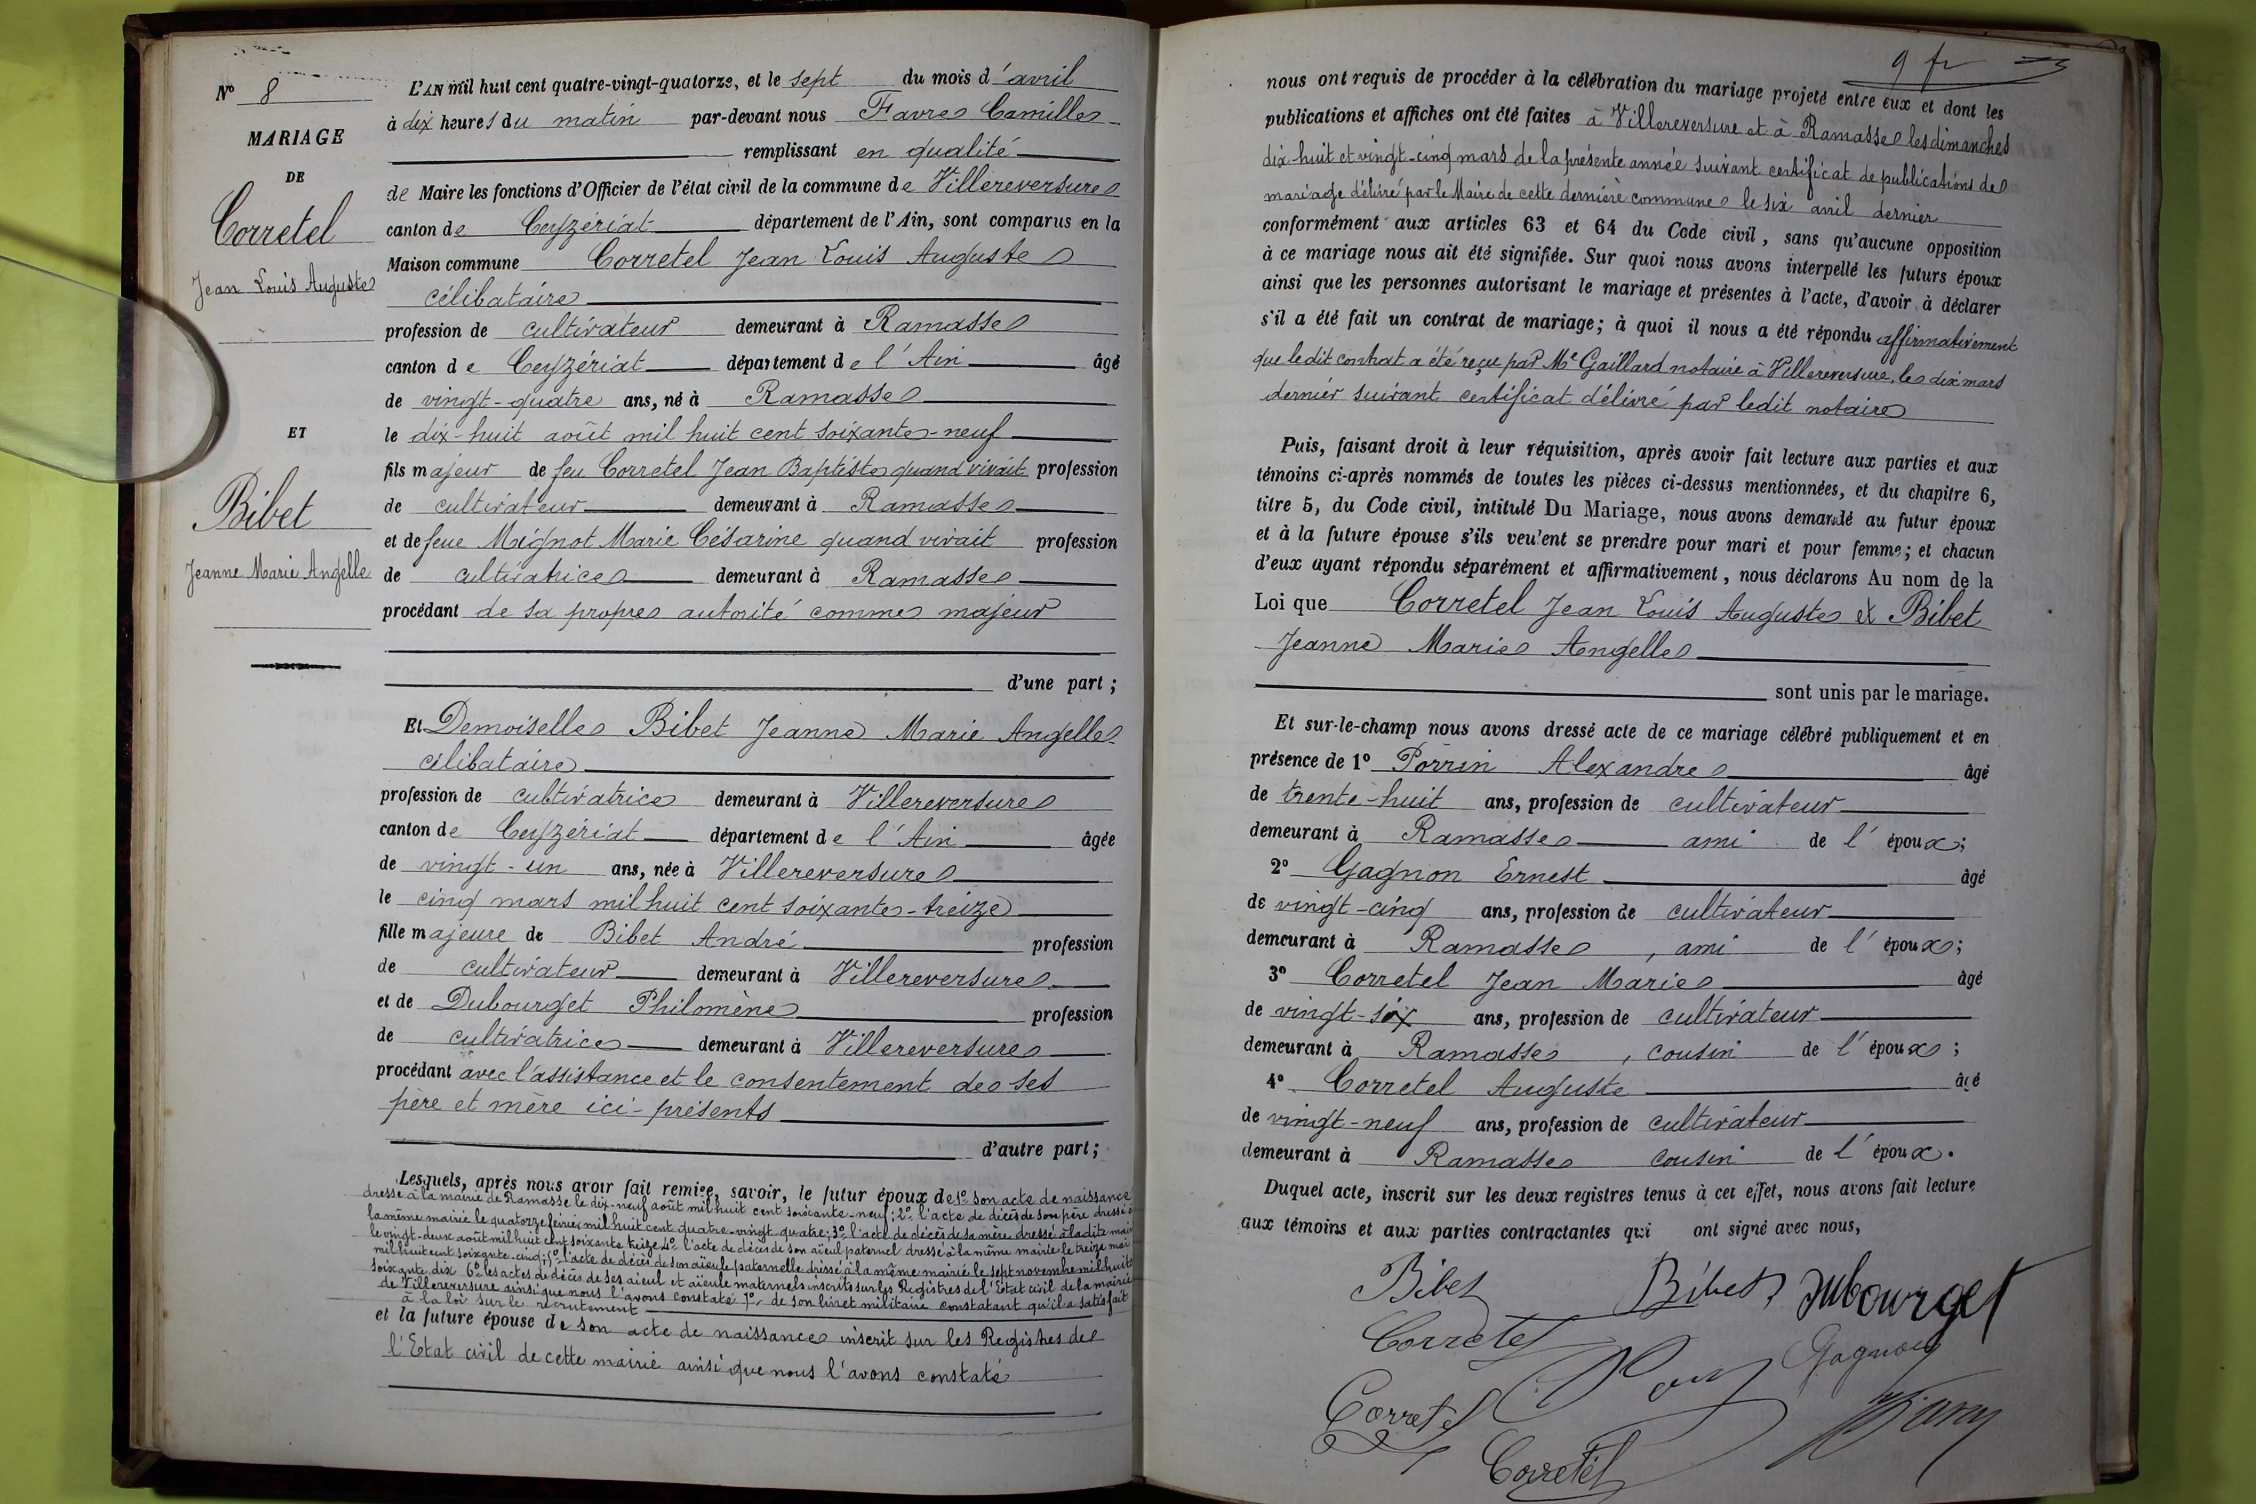 N° 8
MARIAGE
DE
Corretel
Jean Louis Auguste
ET
Bibet
Jeanne Marie Angelle
L'AN mil huit cent quatre-vingt-quatorze, et le sept du mois d'avril
à dix heures du matin par-devant nous Favre Camille
remplissant en qualité
de Maire les fonctions d'Officier de l'état civil de la commune de Villereversure
canton de Ceyzériat département de l'Ain, sont comparus en la
Maison commune Corretel Jean Louis Auguste
célibataire
profession de cultivateur demeurant à Ramasse
canton de Ceyzériat département de l'Ain âgé
de vingt-quatre ans, né à Ramasse
le dix-huit août mil huit cent soixante-neuf
fils majeur de feu Corretel Jean Baptiste quand vivait profession
de cultivateur demeurant à Ramasse
et de feue Mignot Marie Césarine quand vivait profession
de cultivatrice demeurant à Ramasse
procédant de sa propre autorité comme majeur
d'une part ;
Et Demoiselle Bibet Jeanne Marie Angelle
célibataire
profession de cultivatrice demeurant à Villereversure
canton de Ceyzériat département de l'Ain âgée
de vingt-un ans, née à Villereversure
le cinq mars mil huit cent soixante-treize
fille majeure de Bibet André profession
de cultivateur demeurant à Villereversure
et de Dubourget Philomène profession
de cultivatrice demeurant à Villereversure
procédant avec l'assistance et le consentement de ses
père et mère ici-présents
d'autre part ;
Lesquels, après nous avoir fait remise, savoir, le futur époux de 1° son acte de naissance
dressé à la mairie de Ramasse le dix-neuf août mil huit cent soixante-neuf ; 2° l'acte de décès de son père dressé à
la même mairie le quatorze février mil huit cent quatre-vingt-quatre ; 3° l'acte de décès de sa mère dressé à la dite mairie
le vingt-deux août mil huit cent soixante treize 4° l'acte de décès de son aïeul paternel dressé à la même mairie le treize mai
mil huit cent soixante-cinq ; 5° l'acte de décès de son aïeule paternelle dressé à la même mairie le sept novembre mil huit cent
soixante dix 6° les actes de décès de ses aïeul et aïeule maternels inscrits sur les Registres de l'Etat civil de la mairie
de Villereversure ainsi que nous l'avons constaté 7° de son livret militaire constatant qu'il a satisfait
à la loi sur le recrutement
et la future épouse de son acte de naissance inscrit sur les Registres de
l'Etat civil de cette mairie ainsi que nous l'avons constaté
9 fr
nous ont requis de procéder à la célébration du mariage projeté entre eux et dont les
publications et affiches ont été faites à Villereversure et à Ramasse les dimanches
dix-huit et vingt-cinq mars de la présente année suivant certificat de publications de
mariage délivré par le Maire de cette dernière commune le six avril dernier
conformément aux articles 63 et 64 du Code civil, sans qu'aucune opposition
à ce mariage nous ait été signifiée. Sur quoi nous avons interpellé les futurs époux
ainsi que les personnes autorisant le mariage et présentes à l'acte, d'avoir à déclarer
s'il a été fait un contrat de mariage ; à quoi il nous a été répondu affirmativement
que ledit contrat a été reçu par Me Gaillard notaire à Villereversure, le dix mars
dernier suivant certificat délivré par ledit notaire
Puis, faisant droit à leur réquisition, après avoir fait lecture aux parties et aux
témoins ci-après nommés de toutes les pièces ci-dessus mentionnées, et du chapitre 6,
titre 5, du Code civil, intitulé Du Mariage, nous avons demandé au futur époux
et à la future épouse s'ils veulent se prendre pour mari et pour femme ; et chacun
d'eux ayant répondu séparément et affirmativement, nous déclarons Au nom de la
Loi que Corretel Jean Louis Auguste et Bibet
Jeanne Marie Angelle
sont unis par le mariage.
Et sur-le-champ nous avons dressé acte de ce mariage célébré publiquement et en
présence de 1° Porrin Alexandre âgé
de trente-huit ans, profession de cultivateur
demeurant à Ramasse ami de l'époux ;
2° Gagnon Ernest âgé
de vingt-cinq ans, profession de cultivateur
demeurant à Ramasse, ami de l'époux ;
3° Corretel Jean Marie âgé
de vingt-six ans, profession de cultivateur
demeurant à Ramasse, cousin de l'époux ;
4° Corretel Auguste âgé
de vingt-neuf ans, profession de cultivateur
demeurant à Ramasse cousin de l'époux.
Duquel acte, inscrit sur les deux registres tenus à cet effet, nous avons fait lecture
aux témoins et aux parties contractantes qui ont signé avec nous,
Bibet Bibet Dubourget
Corretel Gagnon
Corretel Favre
Corretel